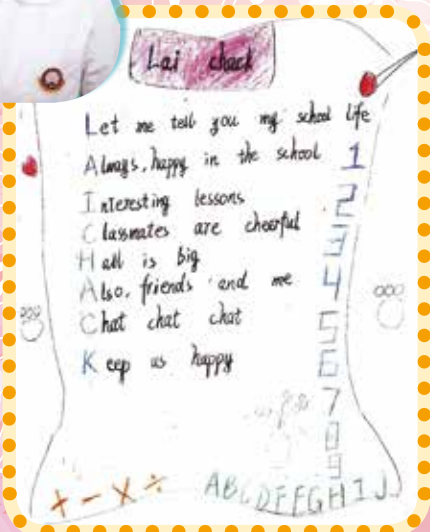 Lai chack
Let me tell you my school life
Always, happy in the school
Interesting lessons
Classmates are cheerful
Hall is big
Also, friends and me
Chat chat chat
Keep us happy
1
2
3
4
5
6
7
8
9
+ - × ÷
ABCDEFGHIJ